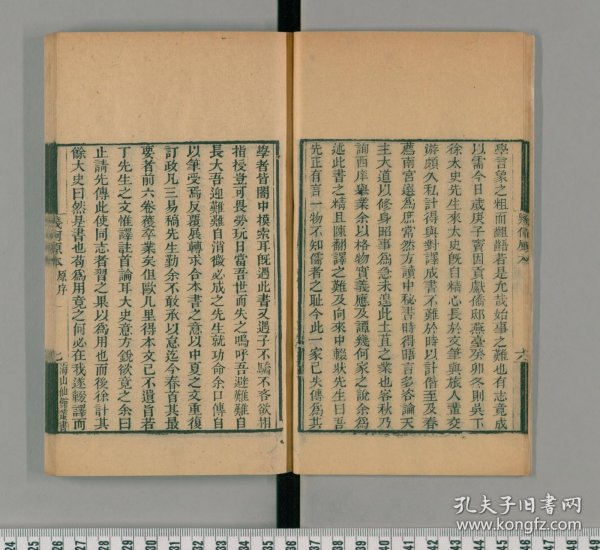 學言象之粗而齟齬若是允哉始事之難也有志竟成
以需今日歲庚子竇因貢獻僑邸燕臺癸卯冬則吳下
徐太史先生來太史旣自精心長於文筆與旅人輩交
游頗久私計得與對譯成書不難於時以計偕至及春
薦南宮選爲庶常然方讀中秘書時得晤言多咨論天
主大道以修身昭事爲急未遑此土苴之業也客秋乃
詢西庠舉業余以格物實義應及譚幾何家之說余爲
述此書之精且陳翻譯之難及向來中輟狀先生曰吾
先正有言一物不知儒者之恥今此一家已失傳爲其
學者皆闇中摸索耳旣遇此書又遇子不驕不吝欲相
指授豈可畏勞玩日當吾世而失之嗚呼吾避難難自
長大吾迎難難自消微必成之先生就功命余口傳自
以筆受焉反覆展轉求合本書之意以中夏之文重復
訂政凡三易稿先生勤余不敢承以怠迄今春首其最
要者前六卷獲卒業矣但歐几里得本文已不遺旨若
丁先生之文惟譯註首論耳太史意方銳欲竟之余曰
止請先傳此使同志者習之果以爲用也而後徐計其
餘太史曰然是書也苟爲用竟之何必在我遂輟譯而
幾何原本 原序 七 海山仙館叢書
孔夫子旧书网
www.kongfz.com
24 25 26 27 28 29 30 31 32 33 34 35 36 37 38 39 40 41 42 43 44 45 46 47 48 49